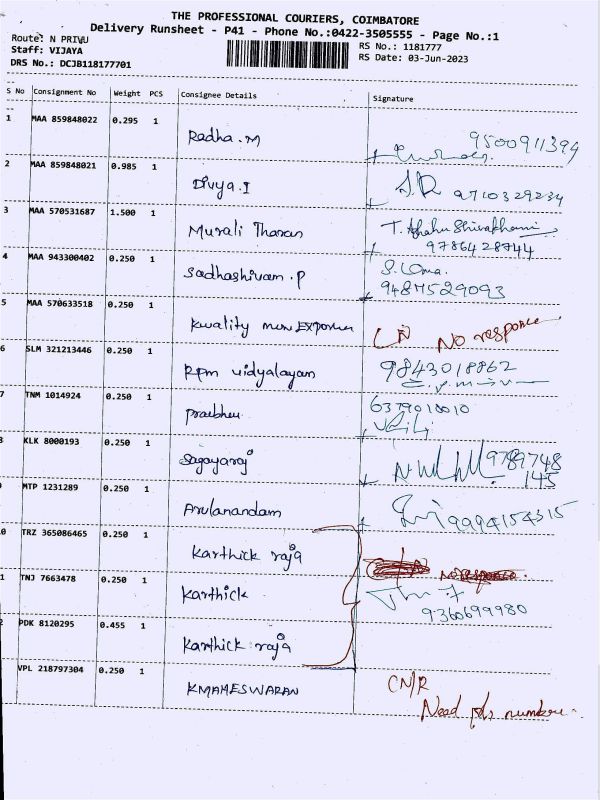 THE PROFESSIONAL COURIERS, COIMBATORE
Delivery Runsheet - P41 - Phone No.:0422-3505555 - Page No.:1
Route: N PRIVU
Staff: VIJAYA
DRS No.: DCJB118177701
RS No.: 1181777
RS Date: 03-Jun-2023
S No Consignment No Weight PCS Consignee Details Signature
1 MAA 859848022 0.295 1 Radha.M 9500911394
2 MAA 859848021 0.985 1 Divya.I 9710329234
3 MAA 570531687 1.500 1 Murali Tharan T.
9786428744
4 MAA 943300402 0.250 1 Sadhashivam.P S.Uma
9487529093
5 MAA 570633518 0.250 1 Kwality Exporter No response
6 SLM 321213446 0.250 1 Rpm vidyalayam 9843018862
7 TNM 1014924 0.250 1 Prabhu 6379010010
KLK 8000193 0.250 1 Sagayaraj 9789748
145
MTP 1231289 0.250 1 Arulanandam 9994154315
0 TRZ 365086465 0.250 1 Karthick raja
1 TNJ 7663478 0.250 1 Karthick
9360699980
2 PDK 8120295 0.455 1 Karthick raja
VPL 218797304 0.250 1 KMAHESWARAN CN/R
Need number